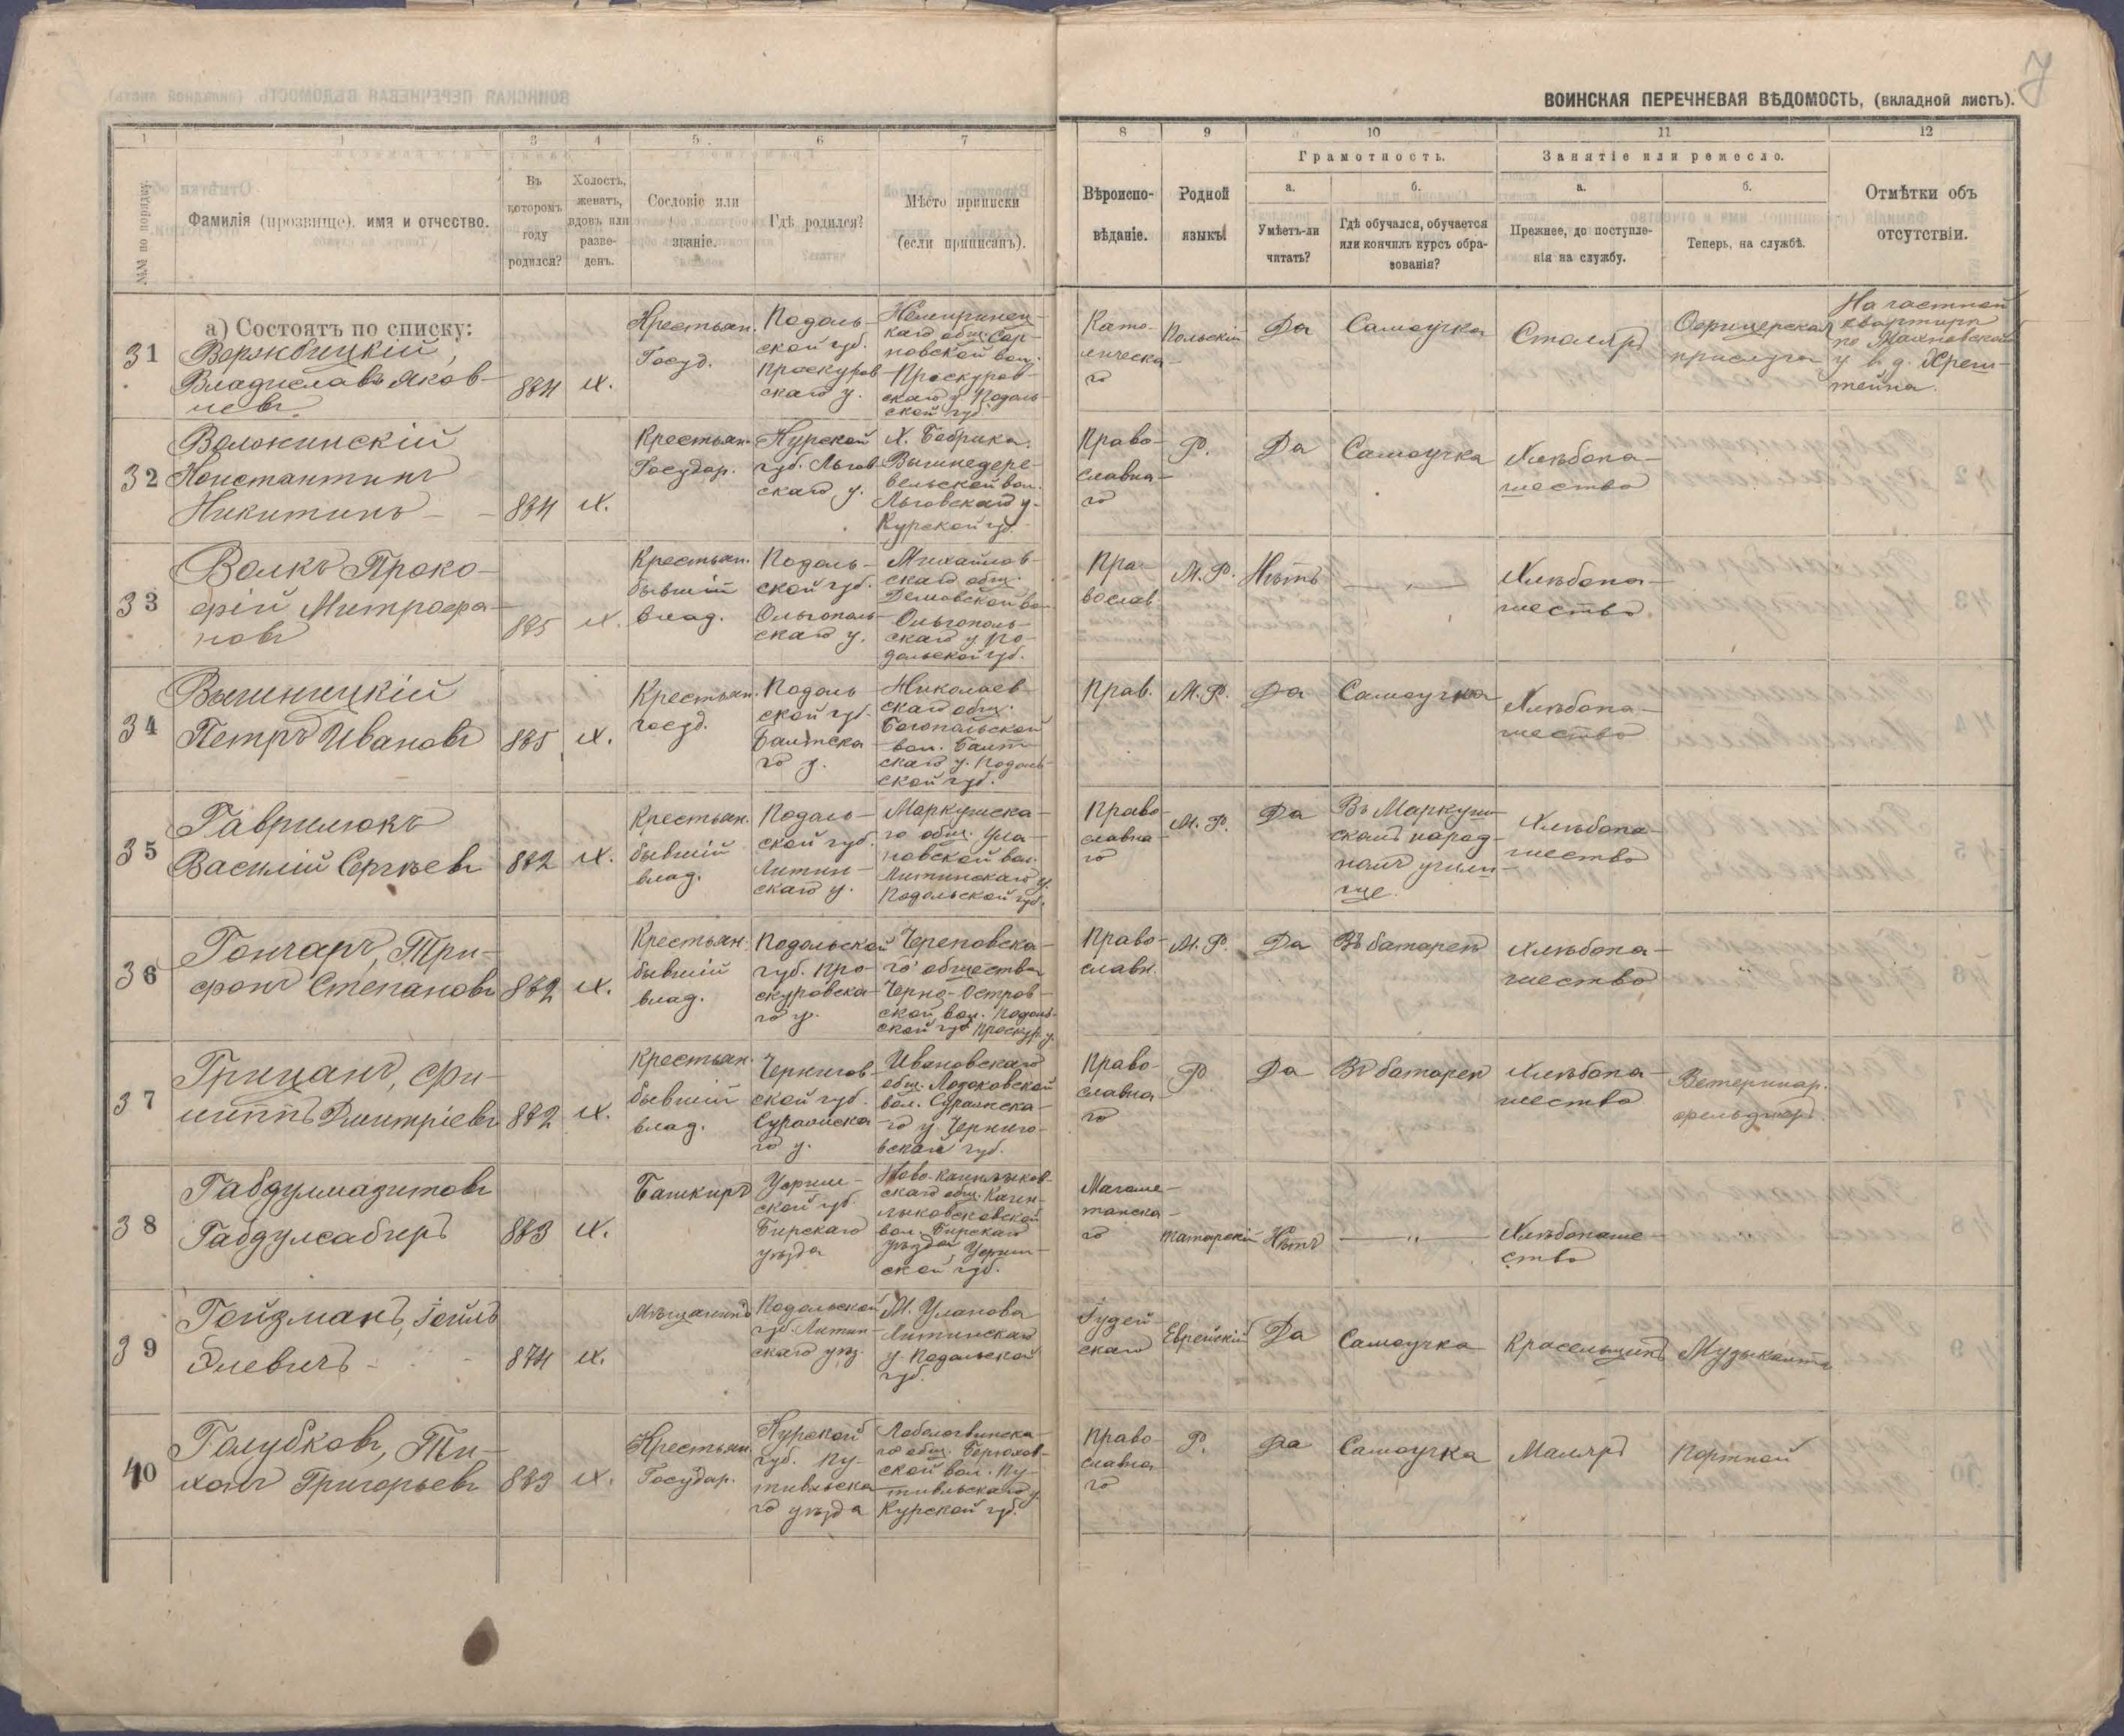 7
ВОИНСКАЯ ПЕРЕЧНЕВАЯ ВѢДОМОСТЬ, (вкладной листъ).
1 1 3 4 5 6 7 8 9 10 11 12
№№ по порядку.
Фамилія (прозвище), имя и отчество.
Въ которомъ году родился?
Холостъ, женатъ, вдовъ или разведенъ.
Сословіе или званіе.
Гдѣ родился?
Мѣсто приписки (если приписанъ).
Вѣроисповѣданіе.
Родной языкъ.
Грамотность.
а. Умѣетъ-ли читать?
б. Гдѣ обучался, обучается или кончилъ курсъ образованія?
Занятіе или ремесло.
а. Прежнее, до поступленія на службу.
б. Теперь, на службѣ.
Отмѣтки объ отсутствіи.
а) Состоятъ по списку:
31
Ворожбицкій,
Владиславъ Яковлевъ
884
Х.
Крестьян.
Госуд.
Подольской губ.
Проскуровскаго у.
Проскуровскаго у. Подольской губ.
Католическаго
Польскій
Да
Самоучка
Столяръ
Офицерская прислуга
На частной квартирѣ
32
Константинъ
Никитинъ
884
Х.
Крестьян.
Государ.
Курской губ. Льговскаго у.
Льговскаго у.
Курской губ.
Православнаго
Р.
Да
Самоучка
Хлѣбопашество
33
Волкъ Прокофій Митрофановъ
885
Х.
Крестьян.
бывшій влад.
Подольской губ.
Ольгопольскаго у.
Михайловскаго общ.
Ольгопольскаго у. Подольской губ.
Православ.
М.Р.
Нѣтъ
— „ —
Хлѣбопашество
34
Петръ Ивановъ
885
Х.
Крестьян.
госуд.
Подольской губ.
Балтскаго у.
Николаевскаго общ.
Богопольской вол. Балтскаго у. Подольской губ.
Прав.
М.Р.
Да
Самоучка
Хлѣбопашество
35
Гаврилюкъ
Василій Сергѣевъ
882
Х.
Крестьян.
бывшій влад.
Подольской губ.
Литинскаго у.
Маркушскаго общ. Улановской вол.
Литинскаго у.
Подольской губ.
Православнаго
М.Р.
Да
Въ Маркушскомъ народномъ училище.
Хлѣбопашество
36
Гончаръ, Трифонъ Степановъ
882
Х.
Крестьян.
бывшій влад.
Подольской губ. Проскуровскаго у.
Череповскаго общества
Черно-Островской вол. Подольской губ. Проскур. у.
Православн.
М.Р.
Да
Въ батареѣ
Хлѣбопашество
37
Грицанъ, Филиппъ Дмитріевъ
882
Х.
Крестьян.
бывшій влад.
Черниговской губ.
Суражскаго у.
Ивановскаго общ.
вол. Суражскаго у. Черниговской губ.
Православнаго
Р.
Да
Въ батареѣ
Хлѣбопашество
Ветеринар. фельдшеръ
38
Габдулмазитовъ
Габдулсабиръ
883
Х.
Башкиръ
Уфимской губ.
Бирскаго уѣзда
вол. Бирскаго уѣзда Уфимской губ.
Магометанскаго
татарскій
Нѣтъ
— „ —
Хлѣбопашество
39
Гойзманъ, Іойлъ
Элевичъ
874
Х.
Мѣщанинъ
Подольской губ. Литинскаго уѣз.
М. Уланова
Литинскаго у. Подольской губ.
Іудейскаго
Еврейскій
Да
Самоучка
Красельщикъ
Музыкантъ
40
Голубковъ, Тихонъ Григорьевъ
883
Х.
Крестьян.
Государ.
Курской губ. Путивльскаго уѣзда
вол. Путивльскаго у.
Курской губ.
Православнаго
Р.
Да
Самоучка
Маляръ
Портной